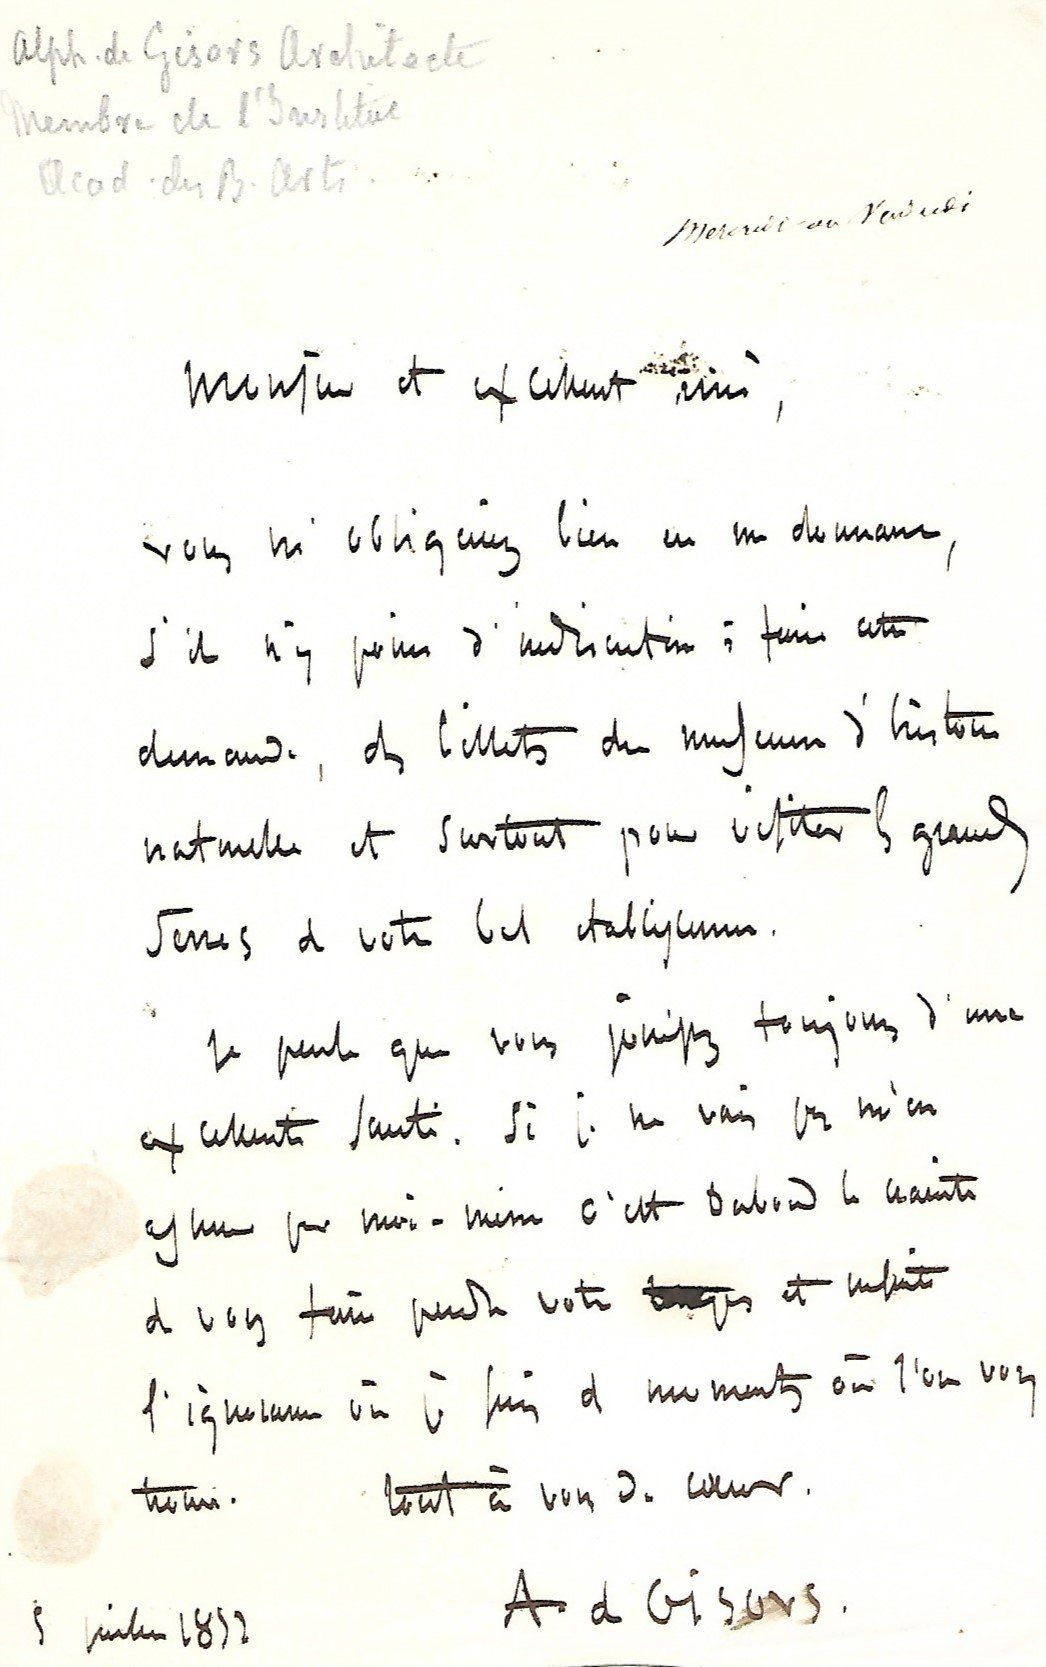 Alph. de Gisors Architecte
Membre de l'Institut
Acad. des B. Arts.
Mercredi ou Vendredi
Monsieur et excellent ami,
vous m'obligeriez bien en me donnant,
s'il n'y point d'indiscrétion à faire cette
demande, des billets du museum d'histoire
naturelle et surtout pour visiter les grandes
Serres de votre bel etablissement.
Je pense que vous jouissez toujours d'une
excellente santé. Si je ne vais pas m'en
assurer par moi-même c'est Dabord la crainte
de vous faire perdre votre temps et ensuite
l'ignorance où je suis des moments où l'on vous
trouve. tout à vous de cœur.
A. de Gisors.
5 juillet 1852